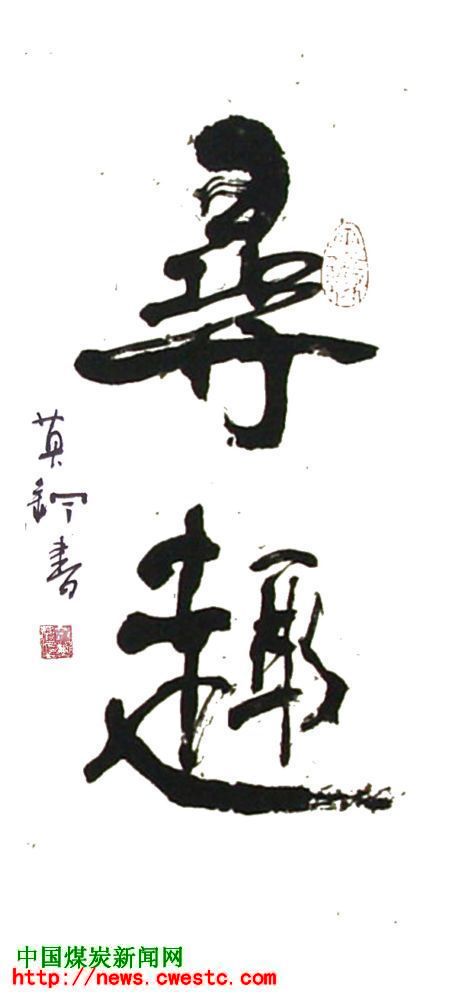 尋
趣
英鈳書
中国煤炭新闻网
http://news.cwestc.com